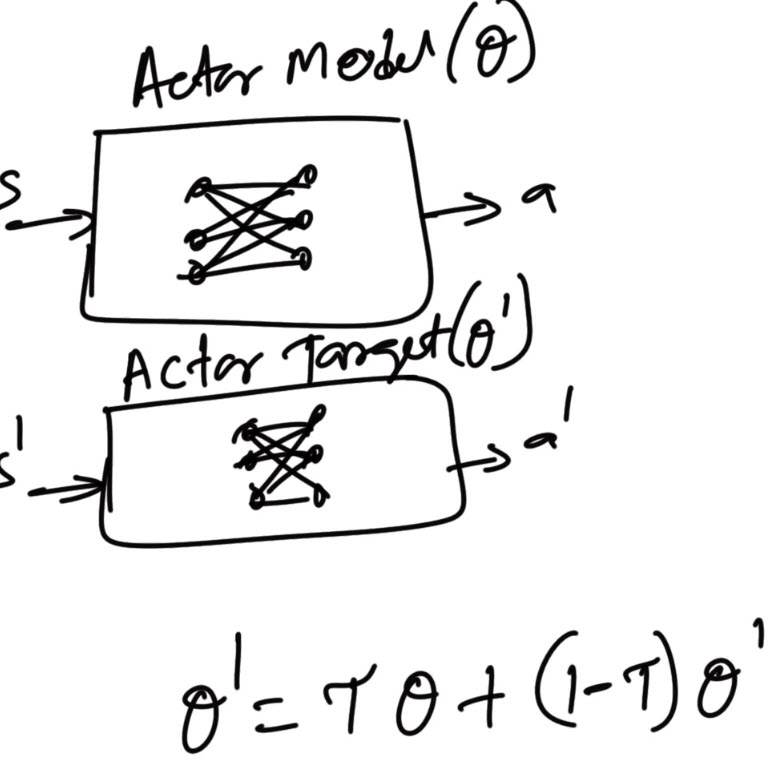 Actor Model(θ)
s
a
Actor Target(θ')
s'
a'
θ' = τθ + (1-τ)θ'